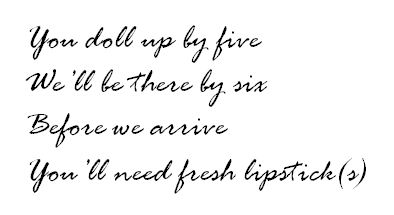 You doll up by five
We'll be there by six
Before we arrive
You'll need fresh lipstick(s)